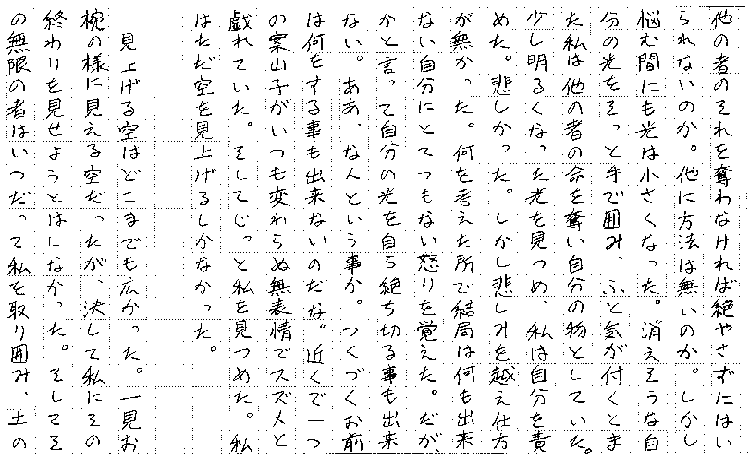 他の者のそれを奪わなければ絶やさずにはい
られないのか。他に方法は無いのか。しかし
悩む間にも光は小さくなった。消えそうな自
分の光をそっと手で囲み、ふと気が付くとま
た私は他の者の命を奪い自分の物としていた。
少し明るくなった光を見つめ、私は自分を責
めた。悲しかった。しかし悲しみを越え仕方
が無かった。何を考えた所で結局は何も出来
ない自分にとてつもない怒りを覚えた。だが、
かと言って自分の光を自ら絶ち切る事も出来
ない。ああ、なんという事か。つくづくお前
は何をする事も出来ないのだな。近くで一つ
の案山子がいつも変わらぬ無表情でスズメと
戯れていた。そしてじっと私を見つめた。私
はただ空を見上げるしかなかった。
見上げる空はどこまでも広かった。一見お
椀の様に見える空だったが、決して私にその
終わりを見せようとはしなかった。そしてそ
の無限の者はいつだって私を取り囲み、土の